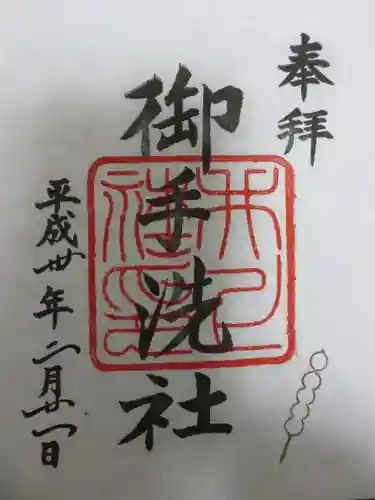 奉拝
御手洗社
平成卅年二月廿一日